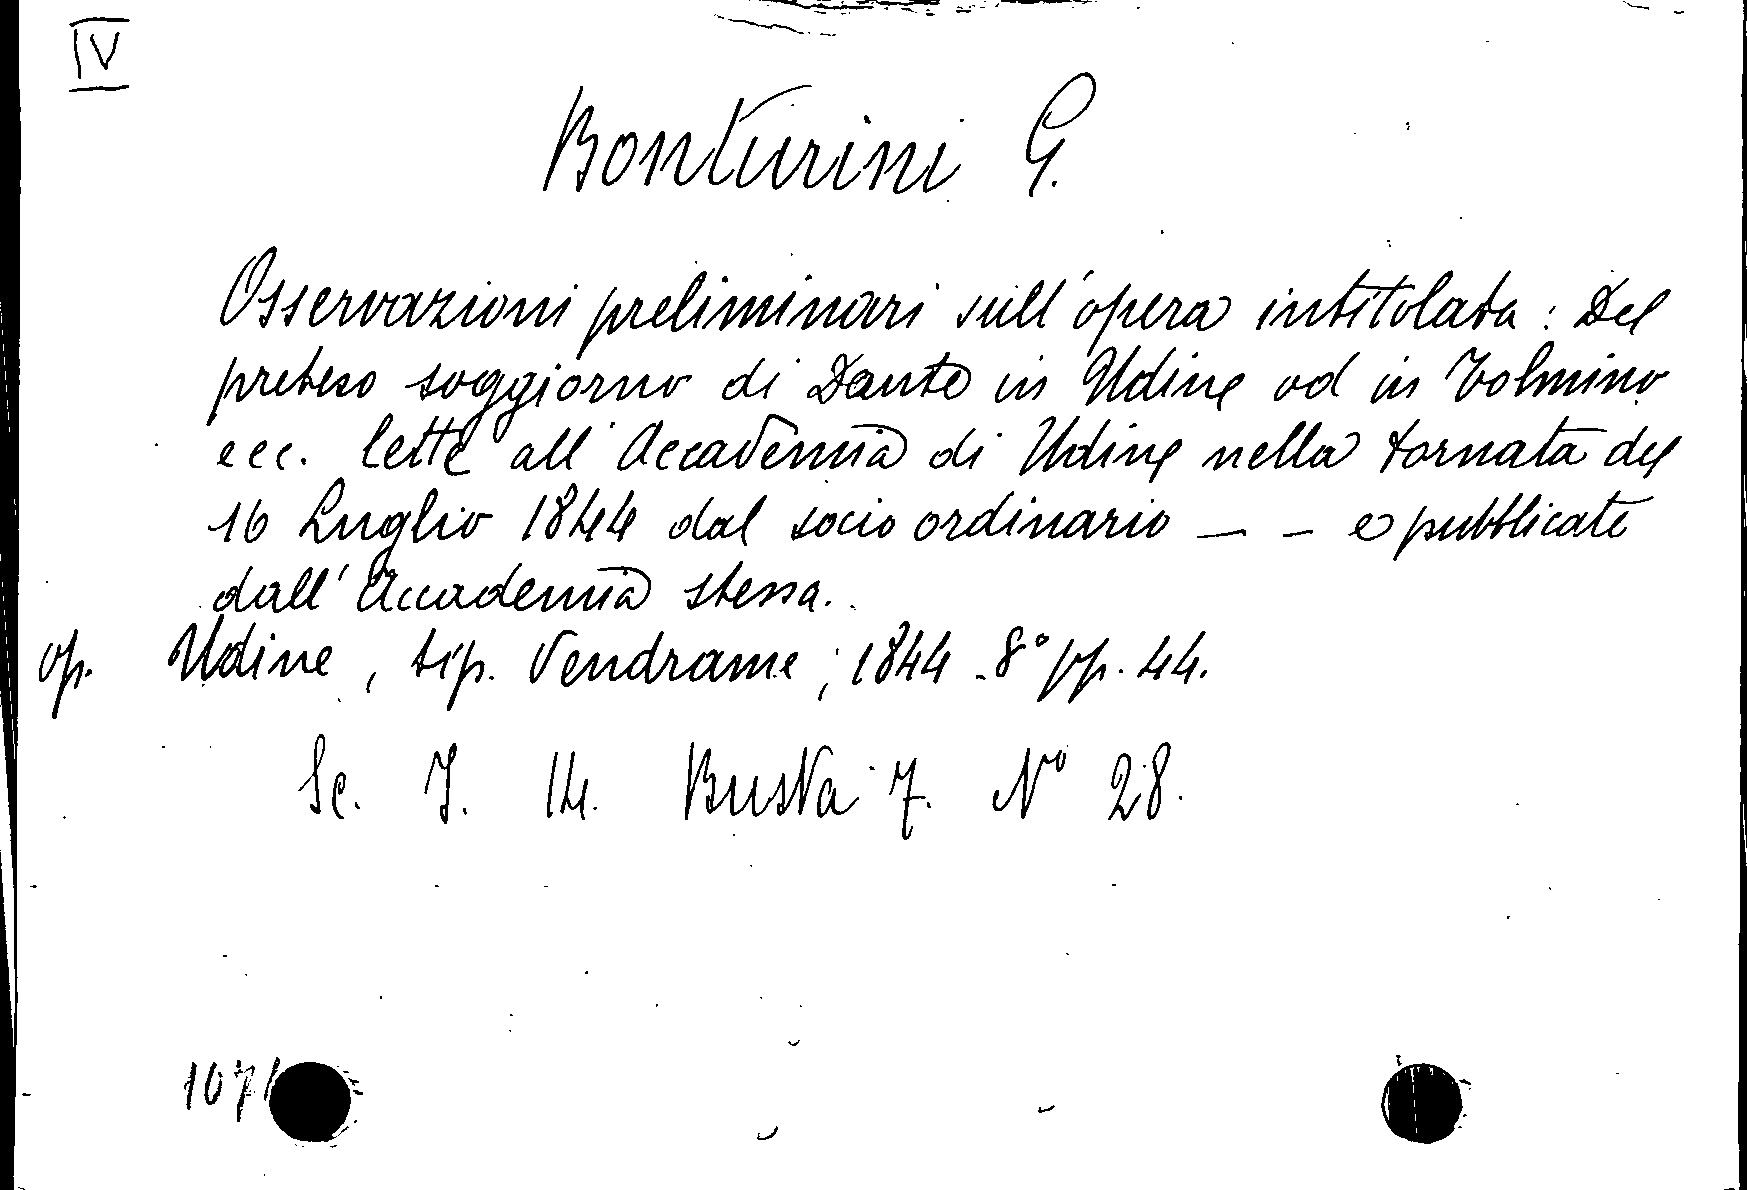 IV
Bonturini G.
Osservazioni preliminari sull'opera intitolata: Del
preteso soggiorno di Dante in Udine od in Tolmino
ecc. lette all'Accademia di Udine nella tornata del
16 Luglio 1844 dal socio ordinario — — e pubblicate
dall'Accademia stessa.
op. Udine, tip. Vendrame; 1844 - 8° pp. 44.
Sc. I. 14. Busta 7. N° 28.